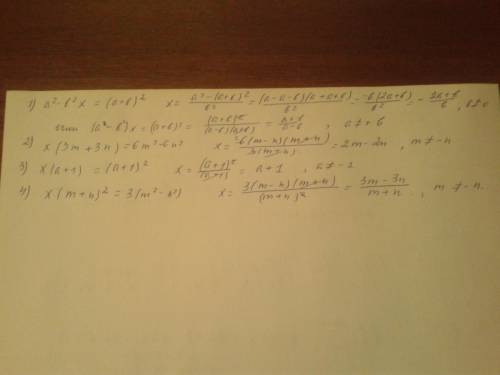 1) a²-b²x = (a+b)² x = (a²-(a+b)²)/b² = ((a-a-b)(a+a+b))/b² = (-b(2a+b))/b² = -(2a+b)/b, b≠0
если (a²-b²)x = (a+b)² = (a+b)²/((a-b)(a+b)) = (a+b)/(a-b), a≠±b
2) x(3m+3n)=6m²-6n² x = (6(m-n)(m+n))/(3(m+n)) = 2m-2n, m≠-n
3) x(a+1) = (a+1)² x = (a+1)²/(a+1) = a+1, a≠-1
4) x(m+n)² = 3(m²-n²) x = (3(m-n)(m+n))/(m+n)² = (3m-3n)/(m+n), m≠-n.